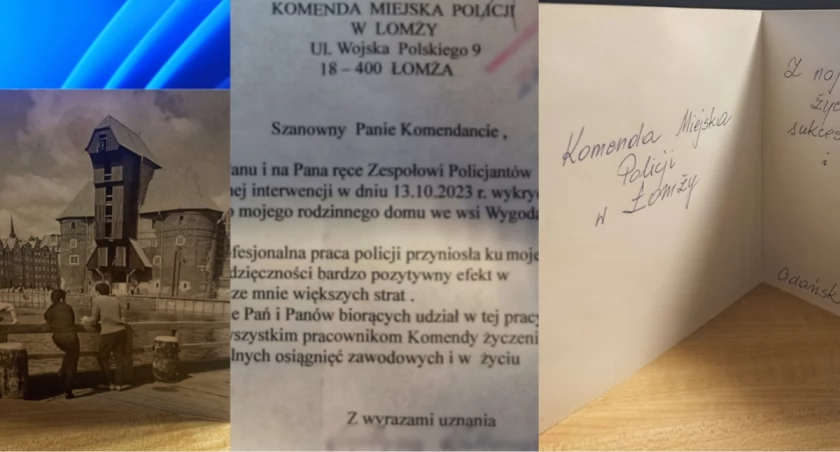 KOMENDA MIEJSKA POLICJI
W ŁOMŻY
Ul. Wojska Polskiego 9
18 – 400 ŁOMŻA
Szanowny Panie Komendancie ,
anu i na Pana ręce Zespołowi Policjantów
ej interwencji w dniu 13.10.2023 r. wykry
mojego rodzinnego domu we wsi Wygoda
fesjonalna praca policji przyniosła ku moje
dzięczności bardzo pozytywny efekt w
ze mnie większych strat .
e Pań i Panów biorących udział w tej pracy
szystkim pracownikom Komendy życzeni
lnych osiągnięć zawodowych i w życiu
Z wyrazami uznania
Komenda Miejska
Policji
w Łomży
Z naj
życ
sukces
i
Gdańsk